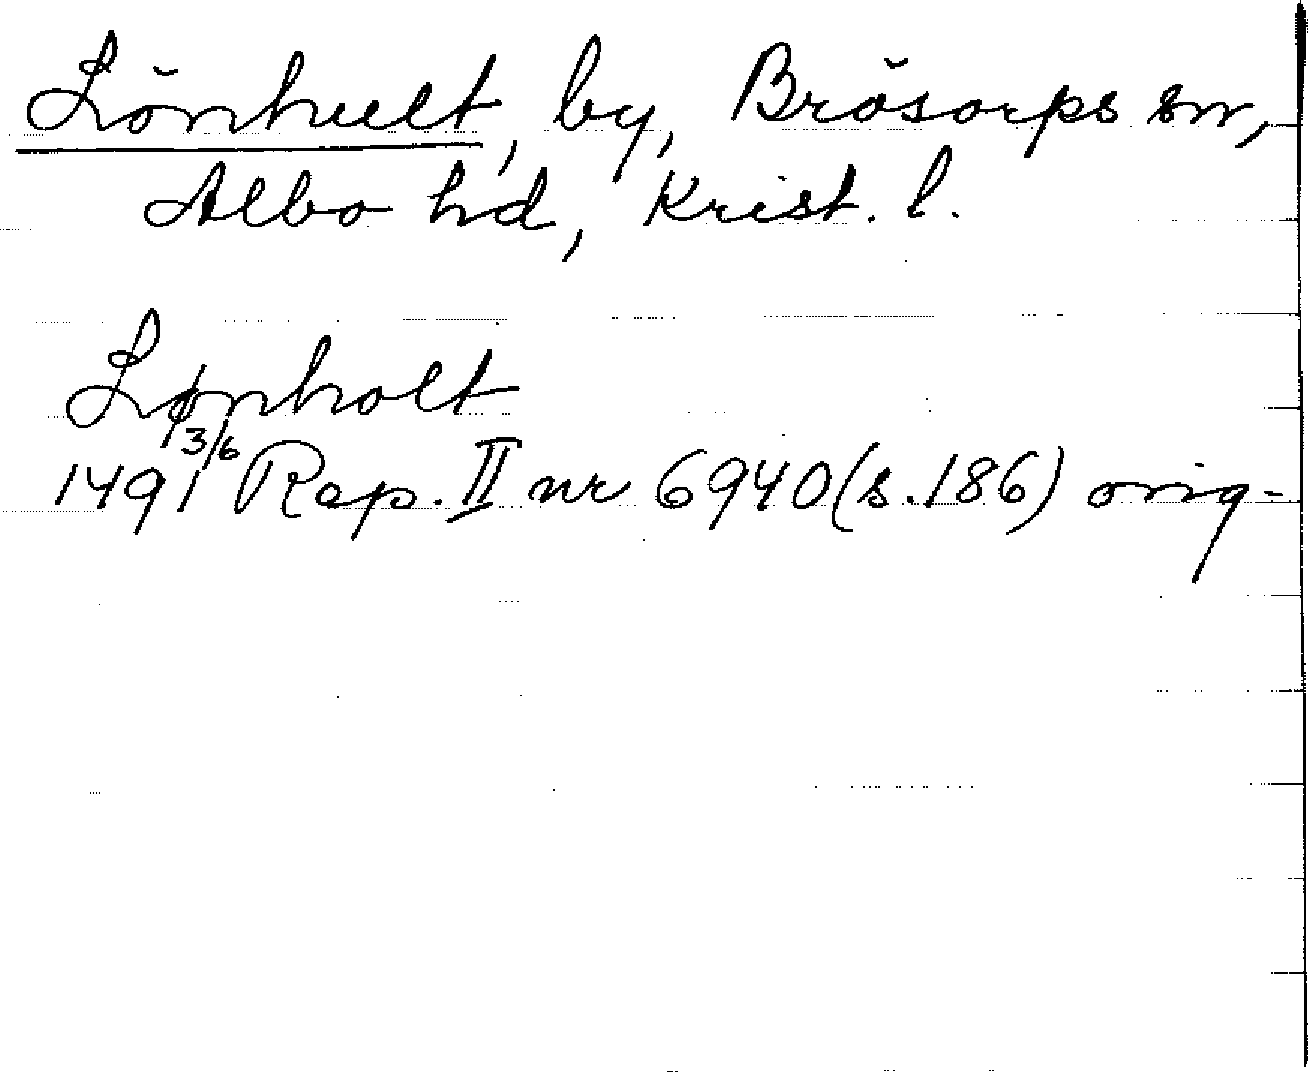 Lönhult, by, Brösarps sn,
Albo hd, Krist. l.
Lønholt
1491 3/6 Rep. II nr 6940 (s. 186) orig.